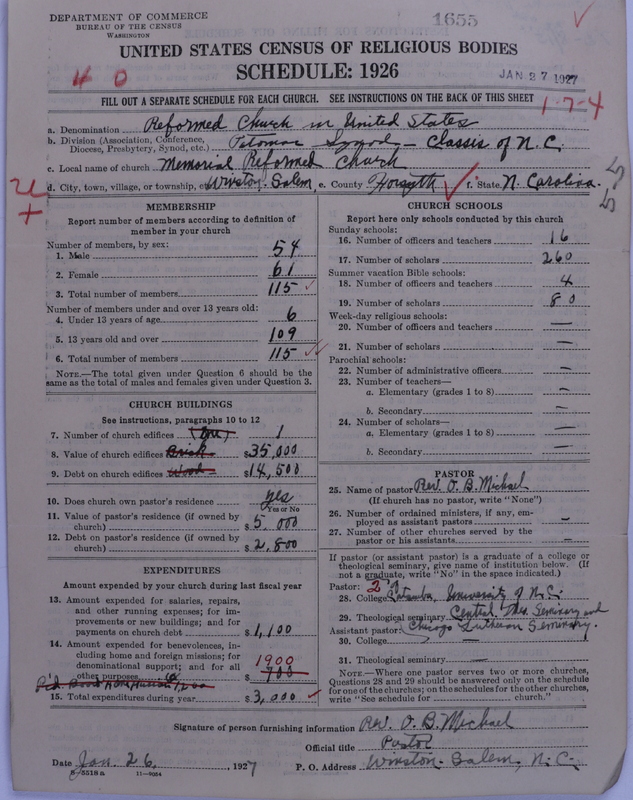 DEPARTMENT OF COMMERCE
BUREAU OF THE CENSUS
WASHINGTON
1655
UNITED STATES CENSUS OF RELIGIOUS BODIES
SCHEDULE: 1926
JAN 27 1927
4 0
FILL OUT A SEPARATE SCHEDULE FOR EACH CHURCH. SEE INSTRUCTIONS ON THE BACK OF THIS SHEET
1-7-4
a. Denomination Reformed Church in United States
b. Division (Association, Conference, Diocese, Presbytery, Synod, etc.) Potomac Synod - Classis of N.C.
c. Local name of church Memorial Reformed Church
d. City, town, village, or township, etc. Winston-Salem, e. County Forsyth f. State N. Carolina.
55
MEMBERSHIP
Report number of members according to definition of member in your church
Number of members, by sex:
1. Male 54
2. Female 61
3. Total number of members 115
Number of members under and over 13 years old:
4. Under 13 years of age 6
5. 13 years old and over 109
6. Total number of members 115
NOTE.—The total given under Question 6 should be the same as the total of males and females given under Question 3.
CHURCH BUILDINGS
See instructions, paragraphs 10 to 12
7. Number of church edifices (One) 1
8. Value of church edifices Brick $35,000
9. Debt on church edifices Wood $14,500
10. Does church own pastor's residence yes
Yes or No
11. Value of pastor's residence (if owned by church) $5,000
12. Debt on pastor's residence (if owned by church) $2,800
EXPENDITURES
Amount expended by your church during last fiscal year
13. Amount expended for salaries, repairs, and other running expenses; for improvements or new buildings; and for payments on church debt $1,100
14. Amount expended for benevolences, including home and foreign missions; for denominational support; and for all other purposes 1900
$ 700
15. Total expenditures during year $3,000
CHURCH SCHOOLS
Report here only schools conducted by this church
Sunday schools:
16. Number of officers and teachers 16
17. Number of scholars 260
Summer vacation Bible schools:
18. Number of officers and teachers 4
19. Number of scholars 80
Week-day religious schools:
20. Number of officers and teachers —
21. Number of scholars —
Parochial schools:
22. Number of administrative officers —
23. Number of teachers—
a. Elementary (grades 1 to 8) —
b. Secondary —
24. Number of scholars—
a. Elementary (grades 1 to 8) —
b. Secondary —
PASTOR
25. Name of pastor Rev. O. B. Michael
(If church has no pastor, write "None")
26. Number of ordained ministers, if any, employed as assistant pastors —
27. Number of other churches served by the pastor or his assistants —
If pastor (or assistant pastor) is a graduate of a college or theological seminary, give name of institution below. (If not a graduate, write "No" in the space indicated.)
Pastor:
28. College Catawba, University of N.C.
29. Theological seminary Central Theo. Seminary and
Assistant pastor: Chicago Lutheran Seminary.
30. College —
31. Theological seminary —
NOTE.—Where one pastor serves two or more churches, Questions 28 and 29 should be answered only on the schedule for one of the churches; on the schedules for the other churches, write "See schedule for church."
Signature of person furnishing information Rev. O. B. Michael
Official title Pastor
Date Jan. 26, 1927
P. O. Address Winston-Salem, N.C.
11—9054